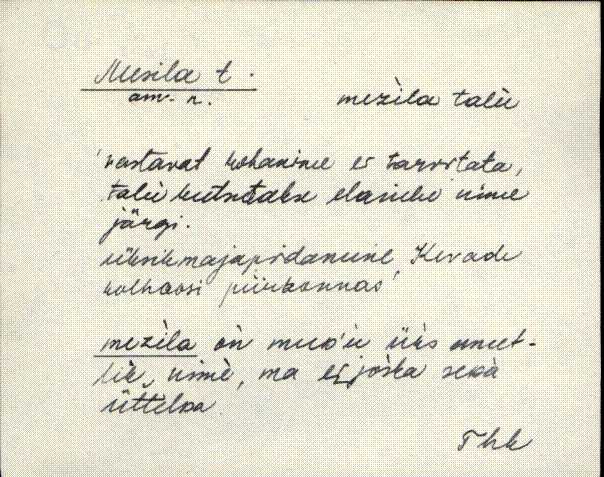 Mesila t.
am. n. mezìla talu
'vastavat kohanime ei tarvitata,
talu kutsutakse elaniku nime
järgi.
üksikmajapidamine Kevade
kolhoosi piirkonnas'
mezìla on üks amet-
lik nimè, ma ei jòska sedà
üttelda
Thk